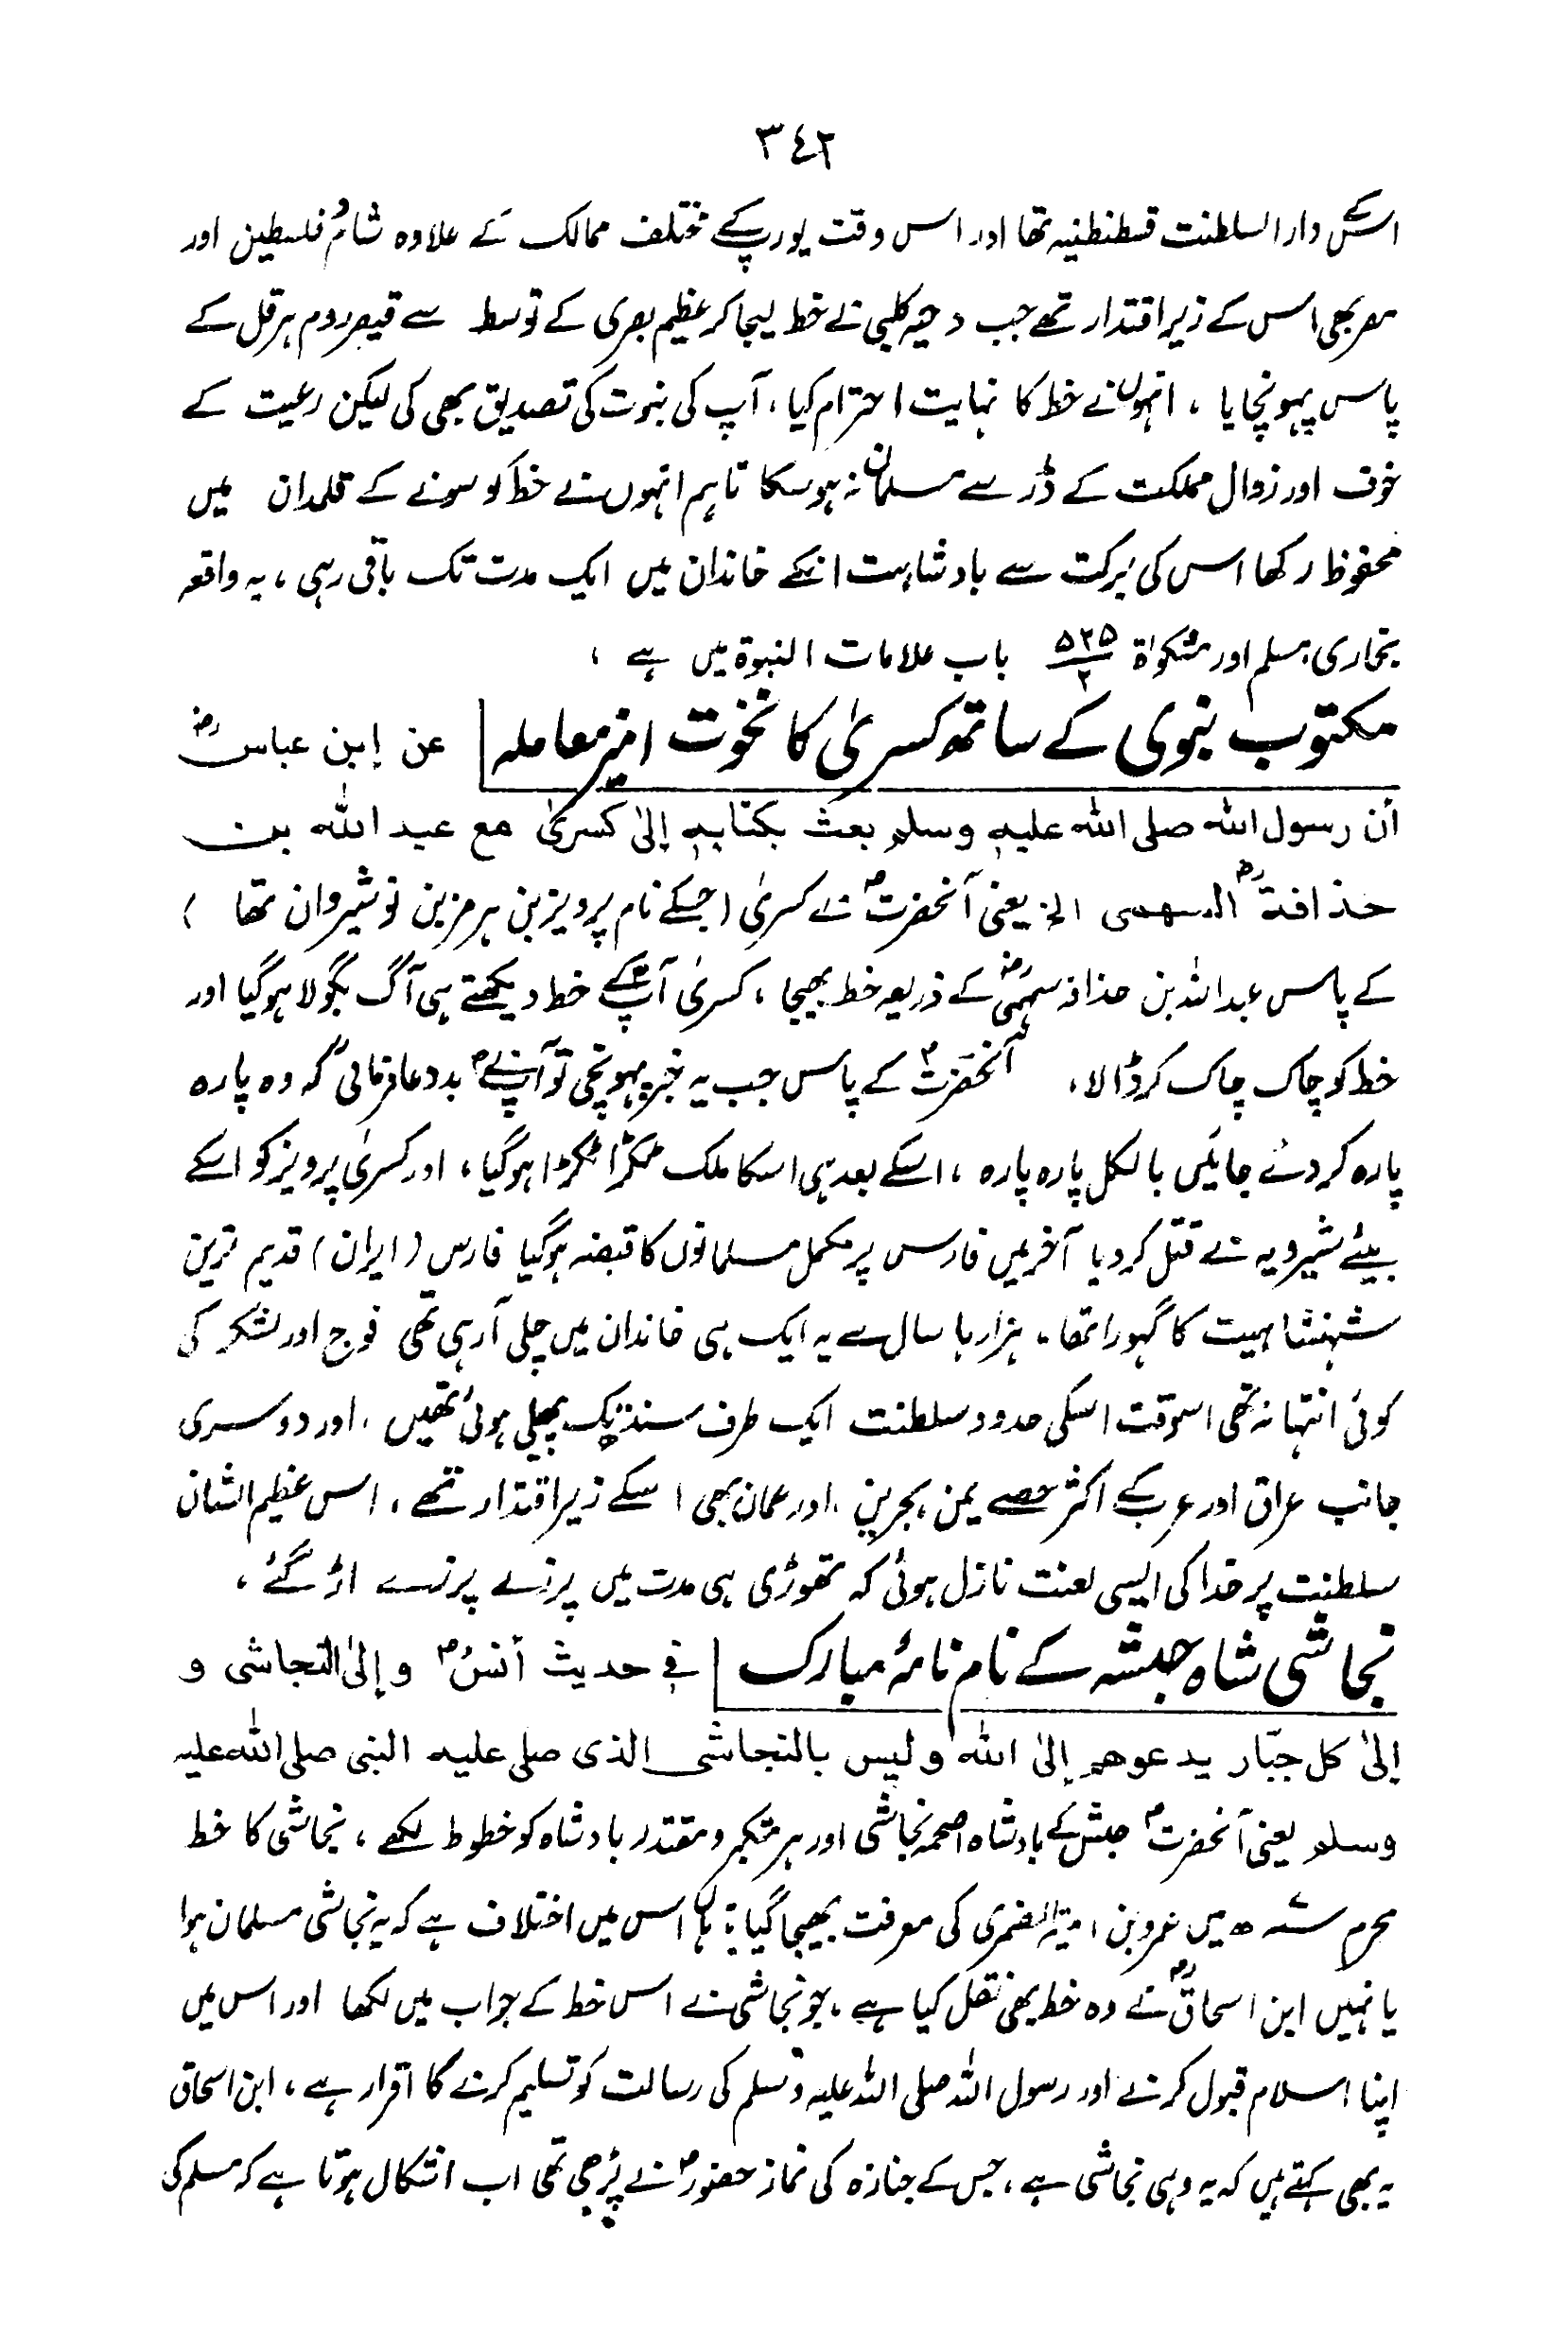 ٣٤٢
اسکے دار السلطنت قسطنطنیہ تھا اور اس وقت یورپ کے مختلف ممالک کے علاوہ شام و فلسطین اور
مصر بھی اس کے زیر اقتدار تھے جب دحیہ کلبی نے خط لیجا کر عظیم بصری کے توسط سے قیصر روم ہرقل کے
پاس پہونچایا ، انہوں نے خط کا نہایت احترام کیا ، آپ کی نبوت کی تصدیق بھی کی لیکن رعیت کے
خوف اور زوال مملکت کے ڈر سے مسلمان نہ ہوسکا تاہم انہوں نے خط کو سونے کے قلمدان میں
محفوظ رکھا اس کی برکت سے بادشاہت انکے خاندان میں ایک مدت تک باقی رہی ، یہ واقعہ
بخاری ، مسلم اور مشکوٰۃ ۵۲۵/۲ باب علامات النبوۃ میں ہے ،
مکتوب نبوی کے ساتھ کسریٰ کا نخوت امیز معاملہ عن إبن عباس رضؓ
أن رسول الله صلى الله عليه وسلم بعث بكتابه إلى كسرىٰ مع عبد الله بن
حذافة رض السهمى الخ یعنی آنحضرت ؐ نے کسریٰ (جسکے نام پرویز بن ہرمز بن نوشیروان تھا )
کے پاس عبد اللہ بن حذافہ سہمی رض کے ذریعہ خط بھیجا ، کسریٰ آپ ؐ کے خط دیکھتے ہی آگ بگولا ہوگیا اور
خط کو چاک چاک کر ڈالا ، آنحضرت ؐ کے پاس جب یہ خبر پہونچی تو آپ ؐ نے بددعا فرمائی کہ وہ پارہ
پارہ کردئے جائیں بالکل پارہ پارہ ، اسکے بعد ہی اسکا ملک ٹکڑا ٹکڑا ہوگیا ، اور کسریٰ پرویز کو اسکے
بیٹے شیرویہ نے قتل کردیا آخر میں فارس پر مکمل مسلمانوں کا قبضہ ہوگیا فارس (ایران) قدیم ترین
شہنشاہیت کا گہورا تھا ۔ ہزارہا سال سے یہ ایک ہی خاندان میں چلی آرہی تھی فوج اور لشکر کی
کوئی انتہا نہ تھی اسوقت اسکی حدود سلطنت ایک طرف سندھ تک پھیلی ہوئی تھیں ، اور دوسری
جانب عراق اور عرب کے اکثر حصے یمن ، بحرین ، اور عمان بھی اسکے زیر اقتدار تھے ، اس عظیم الشان
سلطنت پر خدا کی ایسی لعنت نازل ہوئی کہ تھوڑی ہی مدت میں پرزے پرزے اڑ گئے ،
نجاشی شاہ حبشہ کے نام نامۂ مبارک في حديث أنس رض وإلى النجاشى و
إلىٰ كل جبّار يدعوهم إلى الله وليس بالنجاشى الذى صلى عليه النبى صلى الله عليه
وسلم یعنی آنحضرت ؐ حبش کے بادشاہ اصحمہ نجاشی اور ہر متکبر و مقتدر بادشاہ کو خطوط لکھے ، نجاشی کا خط
محرم ھ میں عمرو بن امیۃ الضمری کی معرفت بھیجا گیا ؛ ہاں اس میں اختلاف ہے کہ یہ نجاشی مسلمان ہوا
یا نہیں ابن اسحاق ؒ نے وہ خط بھی نقل کیا ہے ، جو نجاشی نے اس خط کے جواب میں لکھا اور اس میں
اپنا اسلام قبول کرنے اور رسول اللہ صلی اللہ علیہ وسلم کی رسالت کو تسلیم کرنے کا اقرار ہے ، ابن اسحاق
یہ بھی کہتے ہیں کہ یہ وہی نجاشی ہے ، جس کے جنازہ کی نماز حضور ؐ نے پڑھی تھی اب اشکال ہوتا ہے کہ مسلم کی